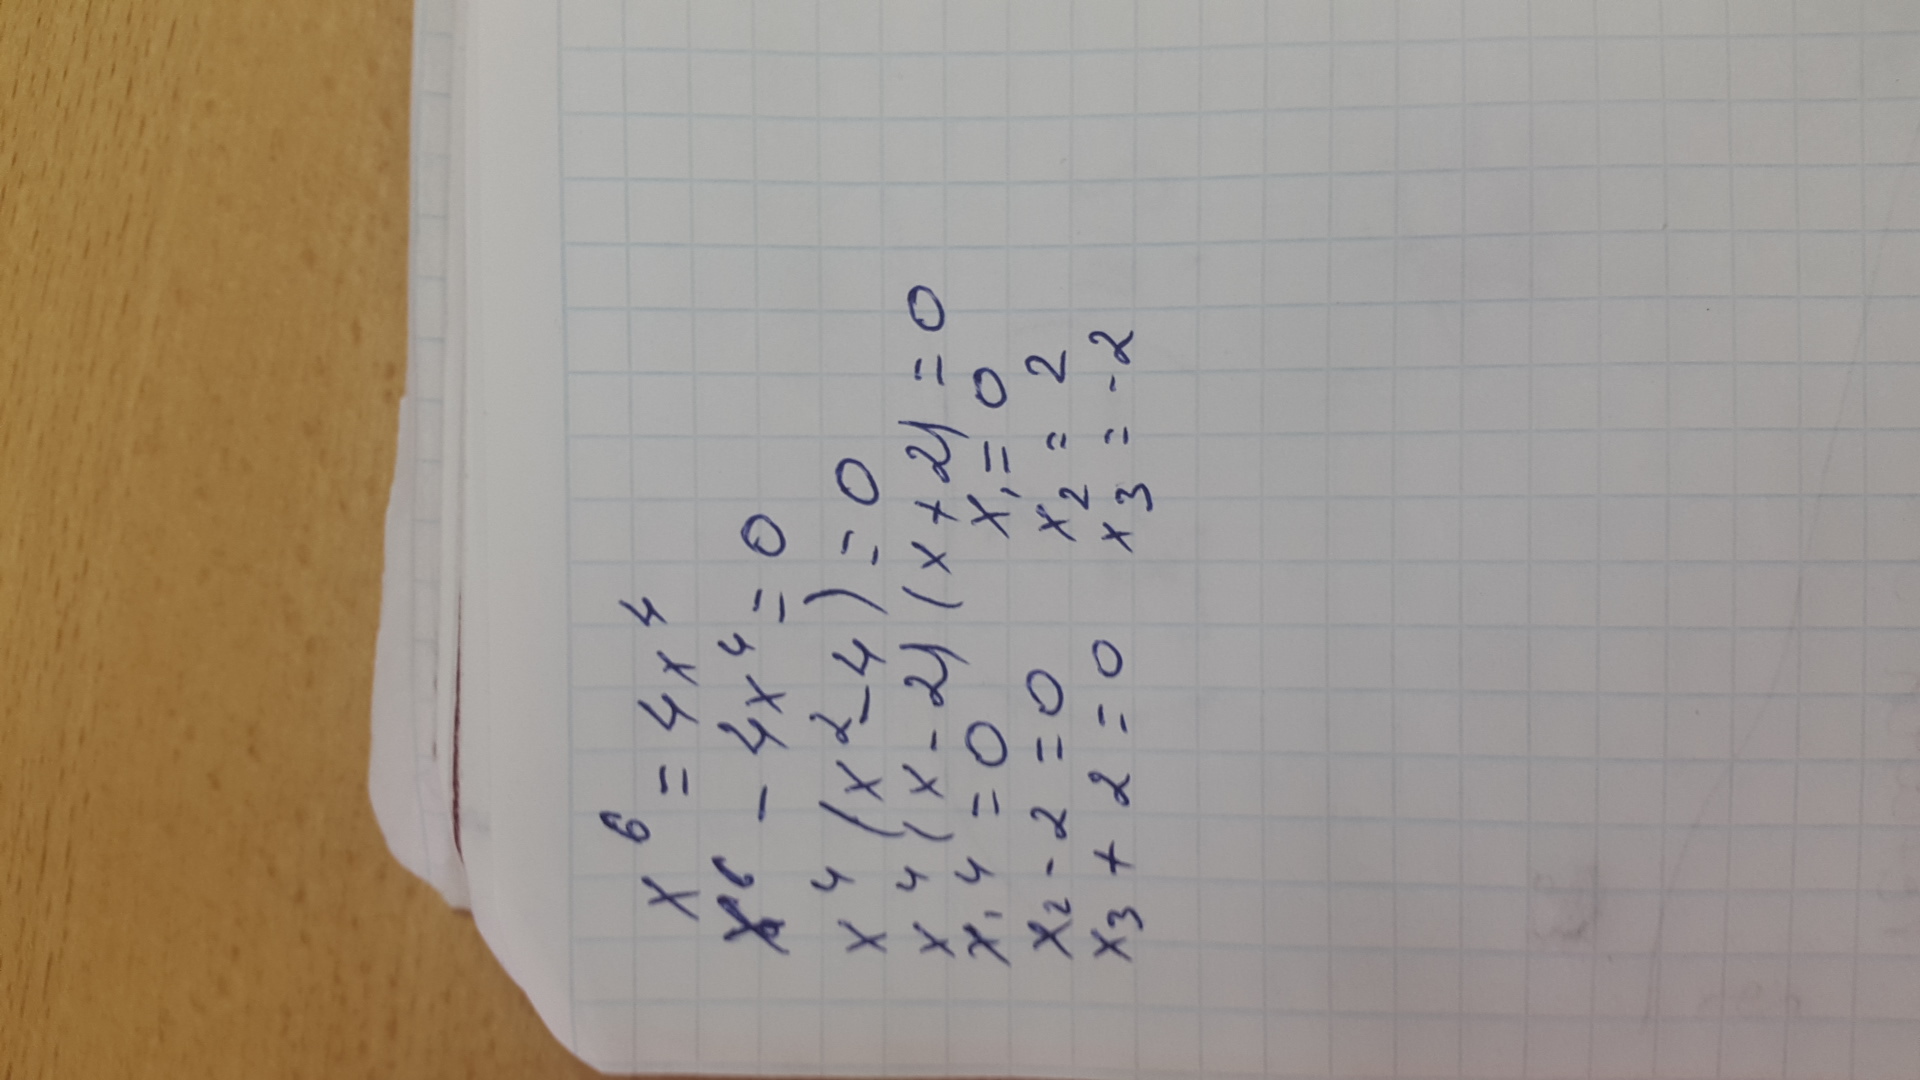 x⁶ = 4x⁴
x⁶ - 4x⁴ = 0
x⁴(x² - 4) = 0
x⁴(x - 2)(x + 2) = 0
x₁⁴ = 0 x₁ = 0
x₂ - 2 = 0 x₂ = 2
x₃ + 2 = 0 x₃ = -2